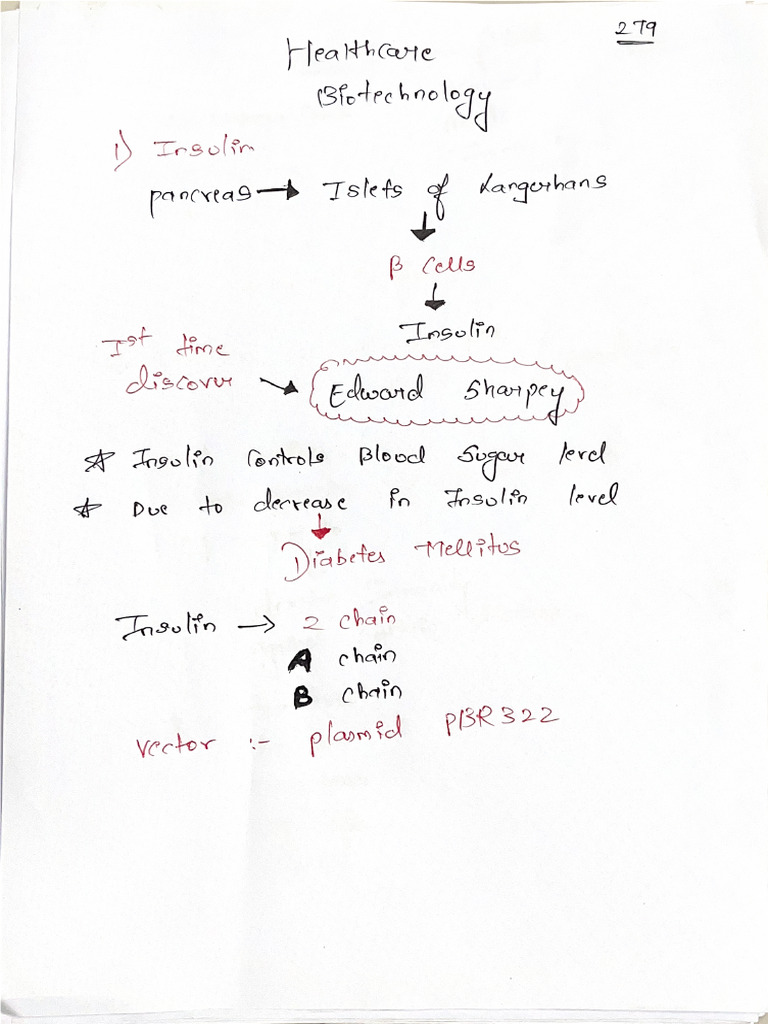 279
Healthcare
Biotechnology
1) Insulin
pancreas → Islets of Langerhans
↓
β cells
↓
Insulin
Ist time
discover → Edward Sharpey
☆ Insulin controls Blood Sugar level
☆ Due to decrease in Insulin level
↓
Diabetes Mellitus
Insulin → 2 chain
A chain
B chain
vector :- plasmid PBR322